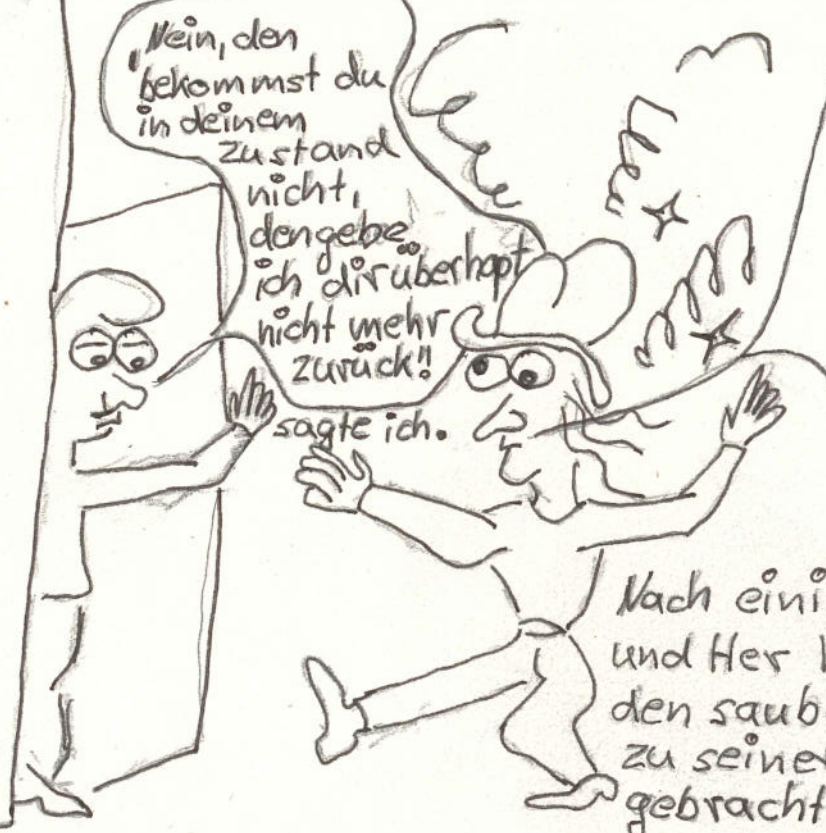 "Nein, den
bekommst du
in deinem
zustand
nicht,
dengebe
ich dir überhapt
nicht mehr
zurück!!
sagte ich.
Nach eini
und Her
den saub
zu seine
gebracht